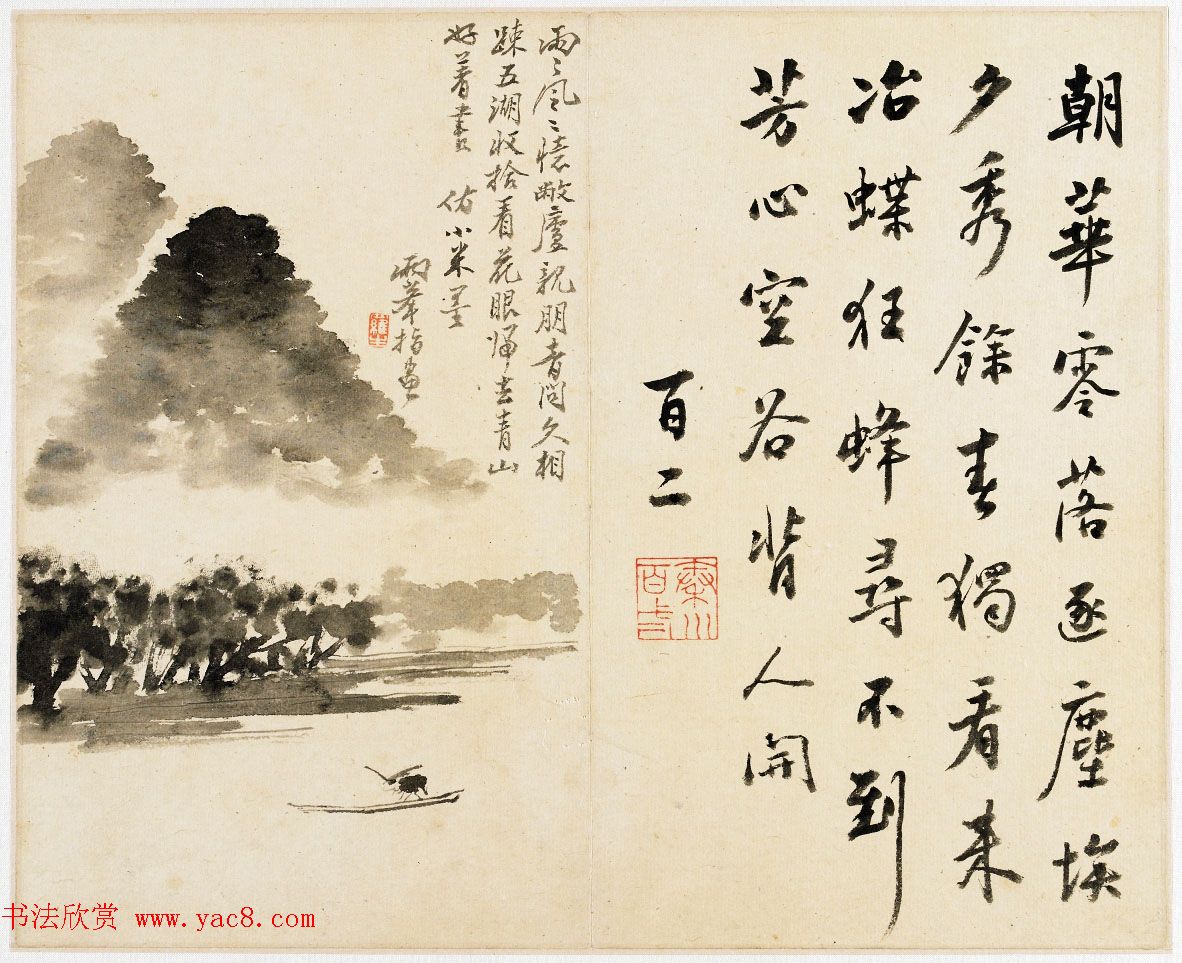 朝華零落逐塵埃
夕秀餘春獨看来
冶蝶狂蜂尋不到
芳心空谷背人開
百二
秦川
百二
雨〻風〻憶敝廬親朋音問久相
踈五湖收拾看花眼歸去青山
好著書 仿小米墨
兩峯指畫
书法欣赏 www.yac8.com